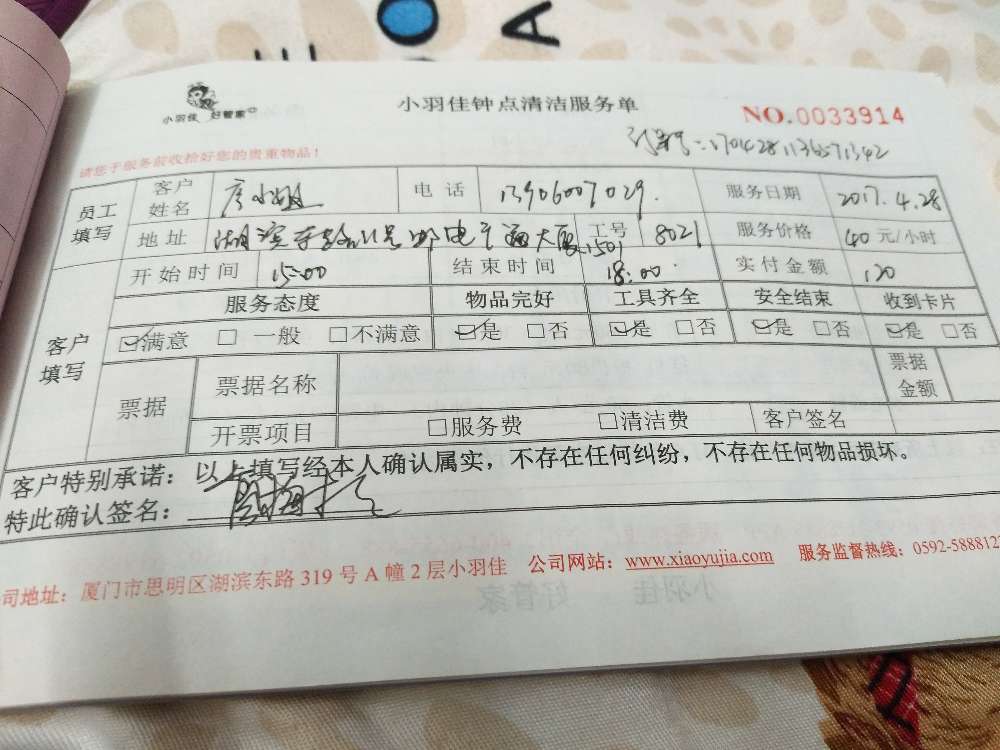 小羽佳 好管家
小羽佳钟点清洁服务单
NO.0033914
请您于服务前收拾好您的贵重物品!
员工填写 客户姓名 小姐 电话 13906007029. 服务日期 2017.4.28
地址 湖滨东路11号邮电广通大厦1501 工号 8021 服务价格 40元/小时
客户填写 开始时间 15:00 结束时间 18:00 实付金额 120
服务态度 物品完好 工具齐全 安全结束 收到卡片
☑满意 □一般 □不满意 ☑是 □否 ☑是 □否 ☑是 □否 ☑是 □否
票据 票据名称 票据金额
开票项目 □服务费 □清洁费 客户签名
客户特别承诺:以上填写经本人确认属实,不存在任何纠纷,不存在任何物品损坏。
特此确认签名:
司地址:厦门市思明区湖滨东路 319 号 A 幢 2 层小羽佳 公司网站:www.xiaoyujia.com 服务监督热线:0592-588812